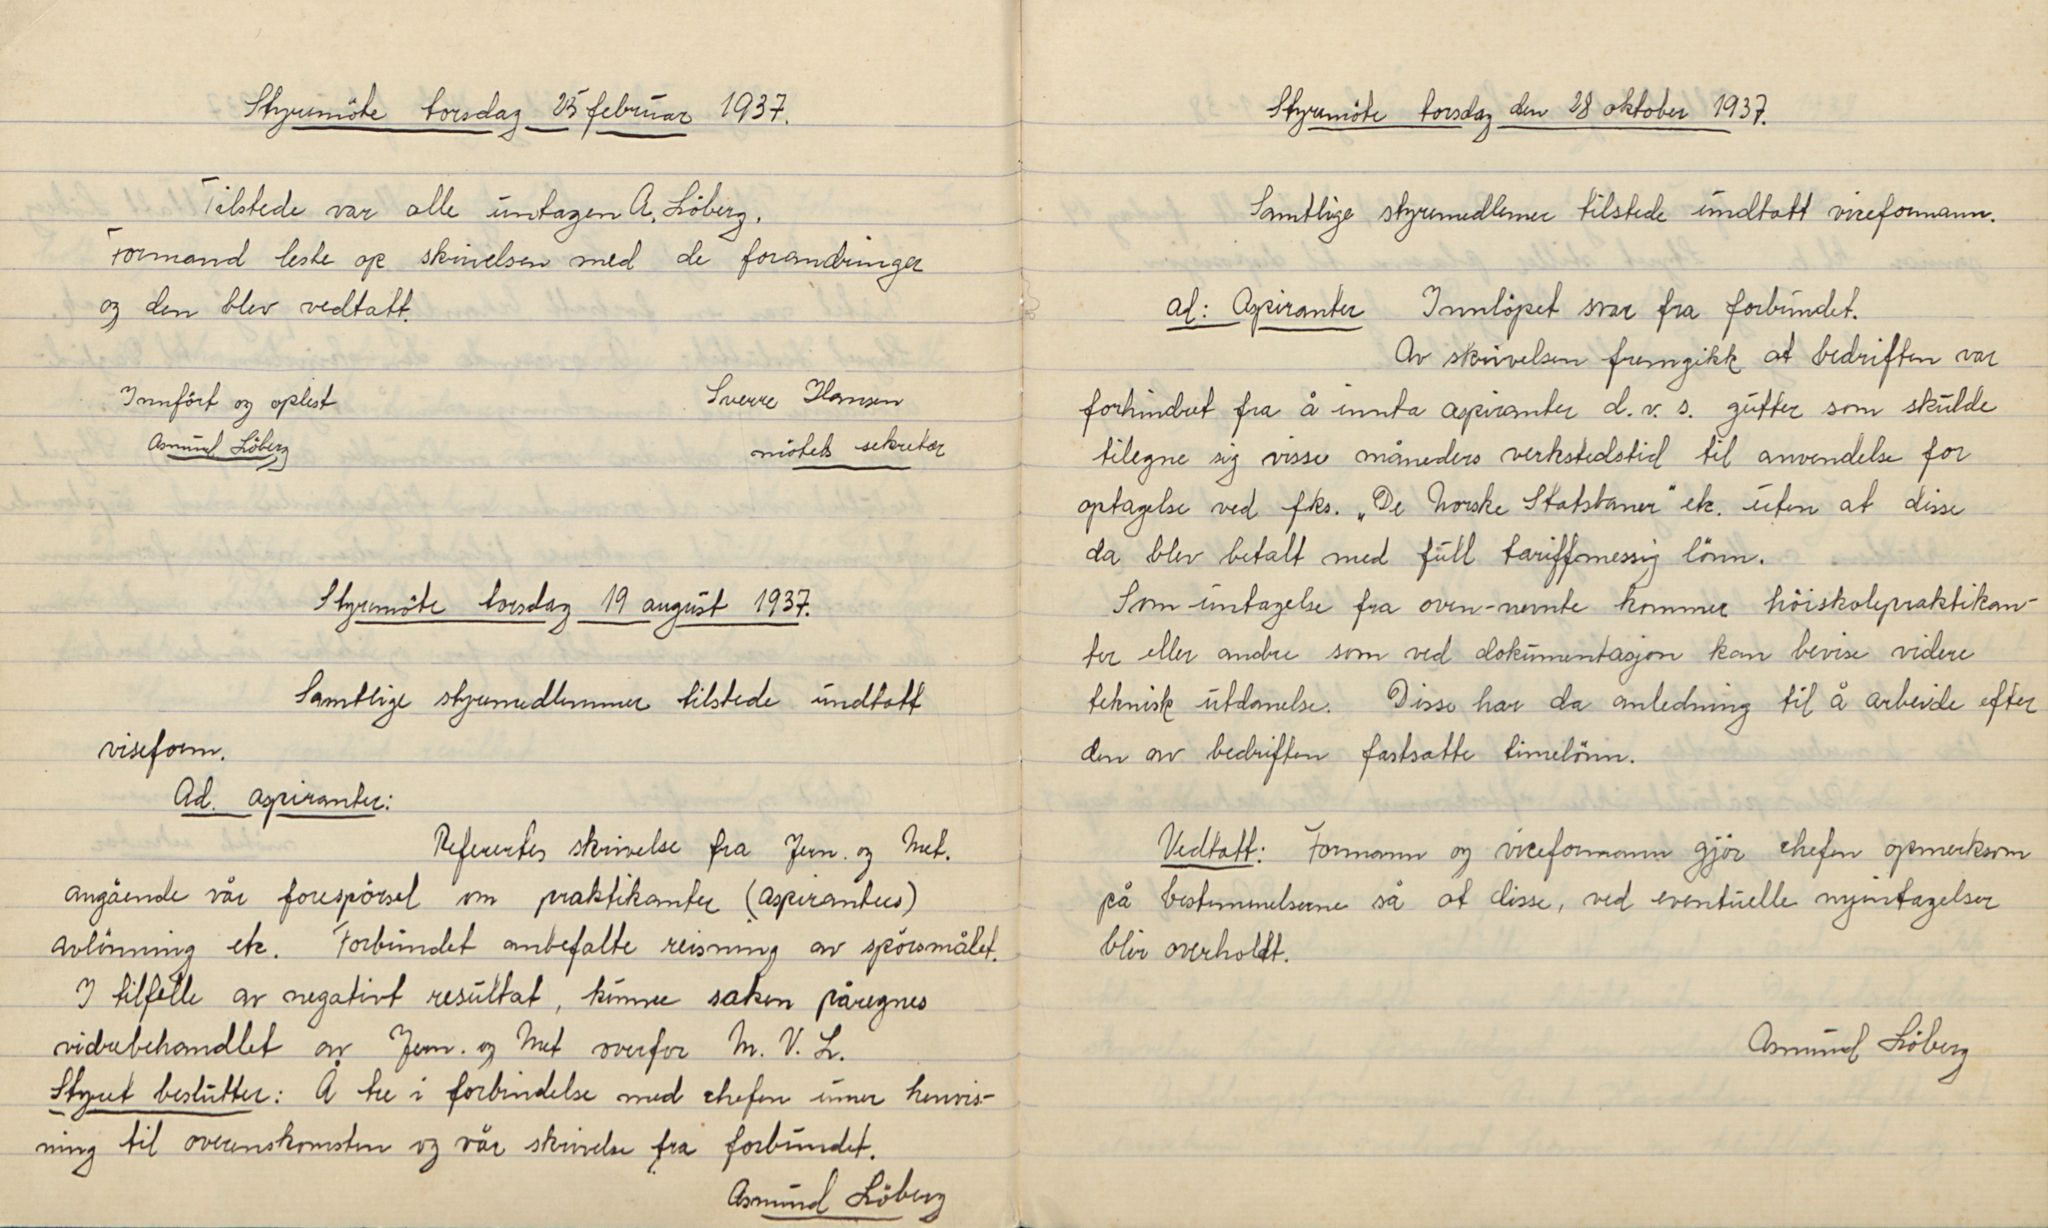 Styremöte torsdag 25 februar 1937.
Tilstede var alle untagen A. Löberg.
Formand leste op skrivelsen med de forandringer
og den blev vedtatt.
Innfört og oplest
Asmund Löberg
Sverre Hansen
mötets sekretær
Styremöte torsdag 19 august 1937.
Samtlige styremedlemmer tilstede undtatt
viseform.
Ad. aspiranter:
Refertes skrivelse fra Jern. og Met.
angående vår forespörsel om praktikanter (aspiranters)
avlönning etc. Forbundet anbefalte reisning av spörsmålet.
I tilfelle av negativt resultat, kunne saken påregnes
viderebehandlet av Jern. og Met overfor M. V. L.
Styret beslutter: Å tre i forbindelse med chefen under henvis-
ning til overenskomsten og vår skrivelse fra forbundet.
Asmund Löberg
Styremöte torsdag den 28 oktober 1937.
Samtlige styremedlemer tilstede undtatt viceformann.
ad: Aspiranter Innlöpet svar fra forbundet.
Av skrivelsen fremgikk at bedriften var
forhindret fra å innta aspiranter d.v.s. gutter som skulde
tilegne sig visse måneders verkstedstid til anvendelse for
optagelse ved fks. „De Norske Statsbaner" etc. uten at disse
da blev betalt med full tariffmessig lönn.
Som untagelse fra oven-nevnte kommer höiskolepraktikan-
ter eller andre som ved dokumentasjon kan bevise videre
teknisk utdanelse. Disse har da anledning til å arbeide efter
den av bedriften fastsatte timelönn.
Vedtatt: Formann og viceformann gjör chefen opmerksom
på bestemmelserne så at disse, ved eventuelle nyintagelser
blir overholdt.
Asmund Löberg